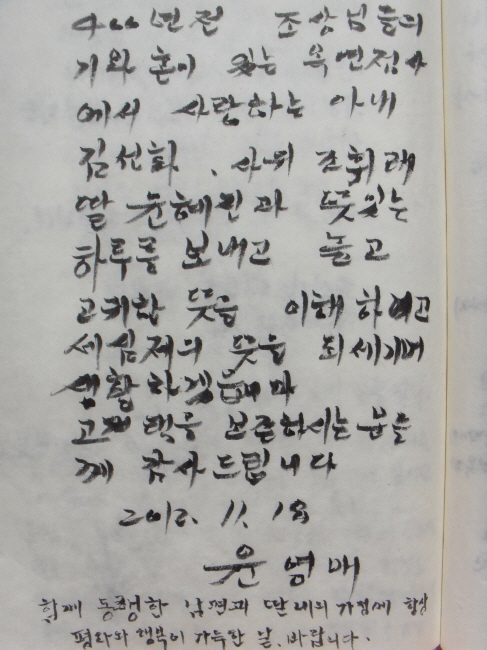 400년전 조상님들의
기와 혼이 있는 옥연정사
에서 사랑하는 아내
김선희, 사위 조휘래
딸 윤혜진과 뜻있는
하루를 보내고 놀고
고귀한 뜻을 이해하고
세심재의 뜻을 되세기며
생활하겠습니다
고택을 보존하시는 분들
께 감사드립니다
2012. 11. 18
윤영매
함께 동행한 남편과 딸내외 가정에 항상
평화와 행복이 가득한 날. 바랍니다.